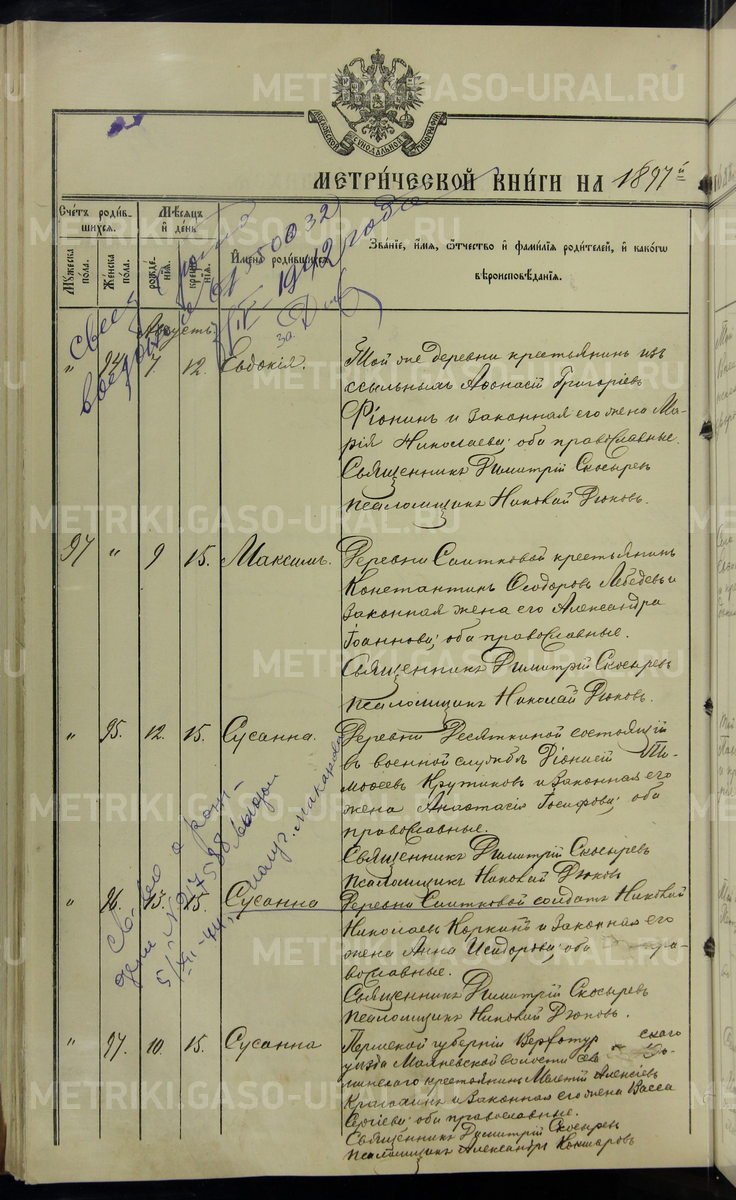 METRIKI.GASO-URAL.RU
МОСКОВСКОЙ СѴНОДАЛЬНОЙ ТИПОГРАФІИ
МЕТРИЧЕСКОЙ КНИГИ НА 1897й
Счетъ родившихся.
Мѣсяцъ и день
Мужеска пола.
Женска пола.
рожденія.
крещенія.
Имена родившихся.
Званіе, имя, отчество и фамилія родителей, и какого
вѣроисповѣданія.
1942 года
Августъ.
" 94. 7 12. Евдокія.
Той же деревни крестьянинъ изъ
ссыльныхъ Аѳонасій Григоріевъ
Фіонинъ и законная его жена Ма-
рія Николаева; оба православные.
Священникъ Димитрій Скосыревъ
Псаломщикъ Николай Дюковъ.
97 " 9 15. Максимъ.
Деревни Саитковой крестьянинъ
Константинъ Ѳеодоровъ Лебедевъ и
законная жена его Александра
Іоаннова; оба православные.
Священникъ Димитрій Скосыревъ
Псаломщикъ Николай Дюковъ.
" 95. 12. 15. Сусанна.
Деревни Десяткиной состоящій
въ военной службѣ Діонисій Ти-
моѳеевъ Крутиковъ и законная его
жена Анастасія Іосифова; оба
православные.
Священникъ Димитрій Скосыревъ
Псаломщикъ Николай Дюковъ
" 96. 15. 15. Сусанна
Деревни Саитковой солдатъ Николай
Николаевъ Коркинъ и законная его
жена Анна Исидорова; оба пра-
вославные.
Священникъ Димитрій Скосыревъ
Псаломщикъ Николай Дюковъ.
" 97. 10. 15. Сусанна
Пермской губерніи Верхотурскаго
уѣзда волости
крестьянинъ Алексіевъ
и законная его жена Васса
Сергіева; оба православные.
Священникъ Димитрій Скосыревъ
Псаломщикъ Александръ Кокшаровъ